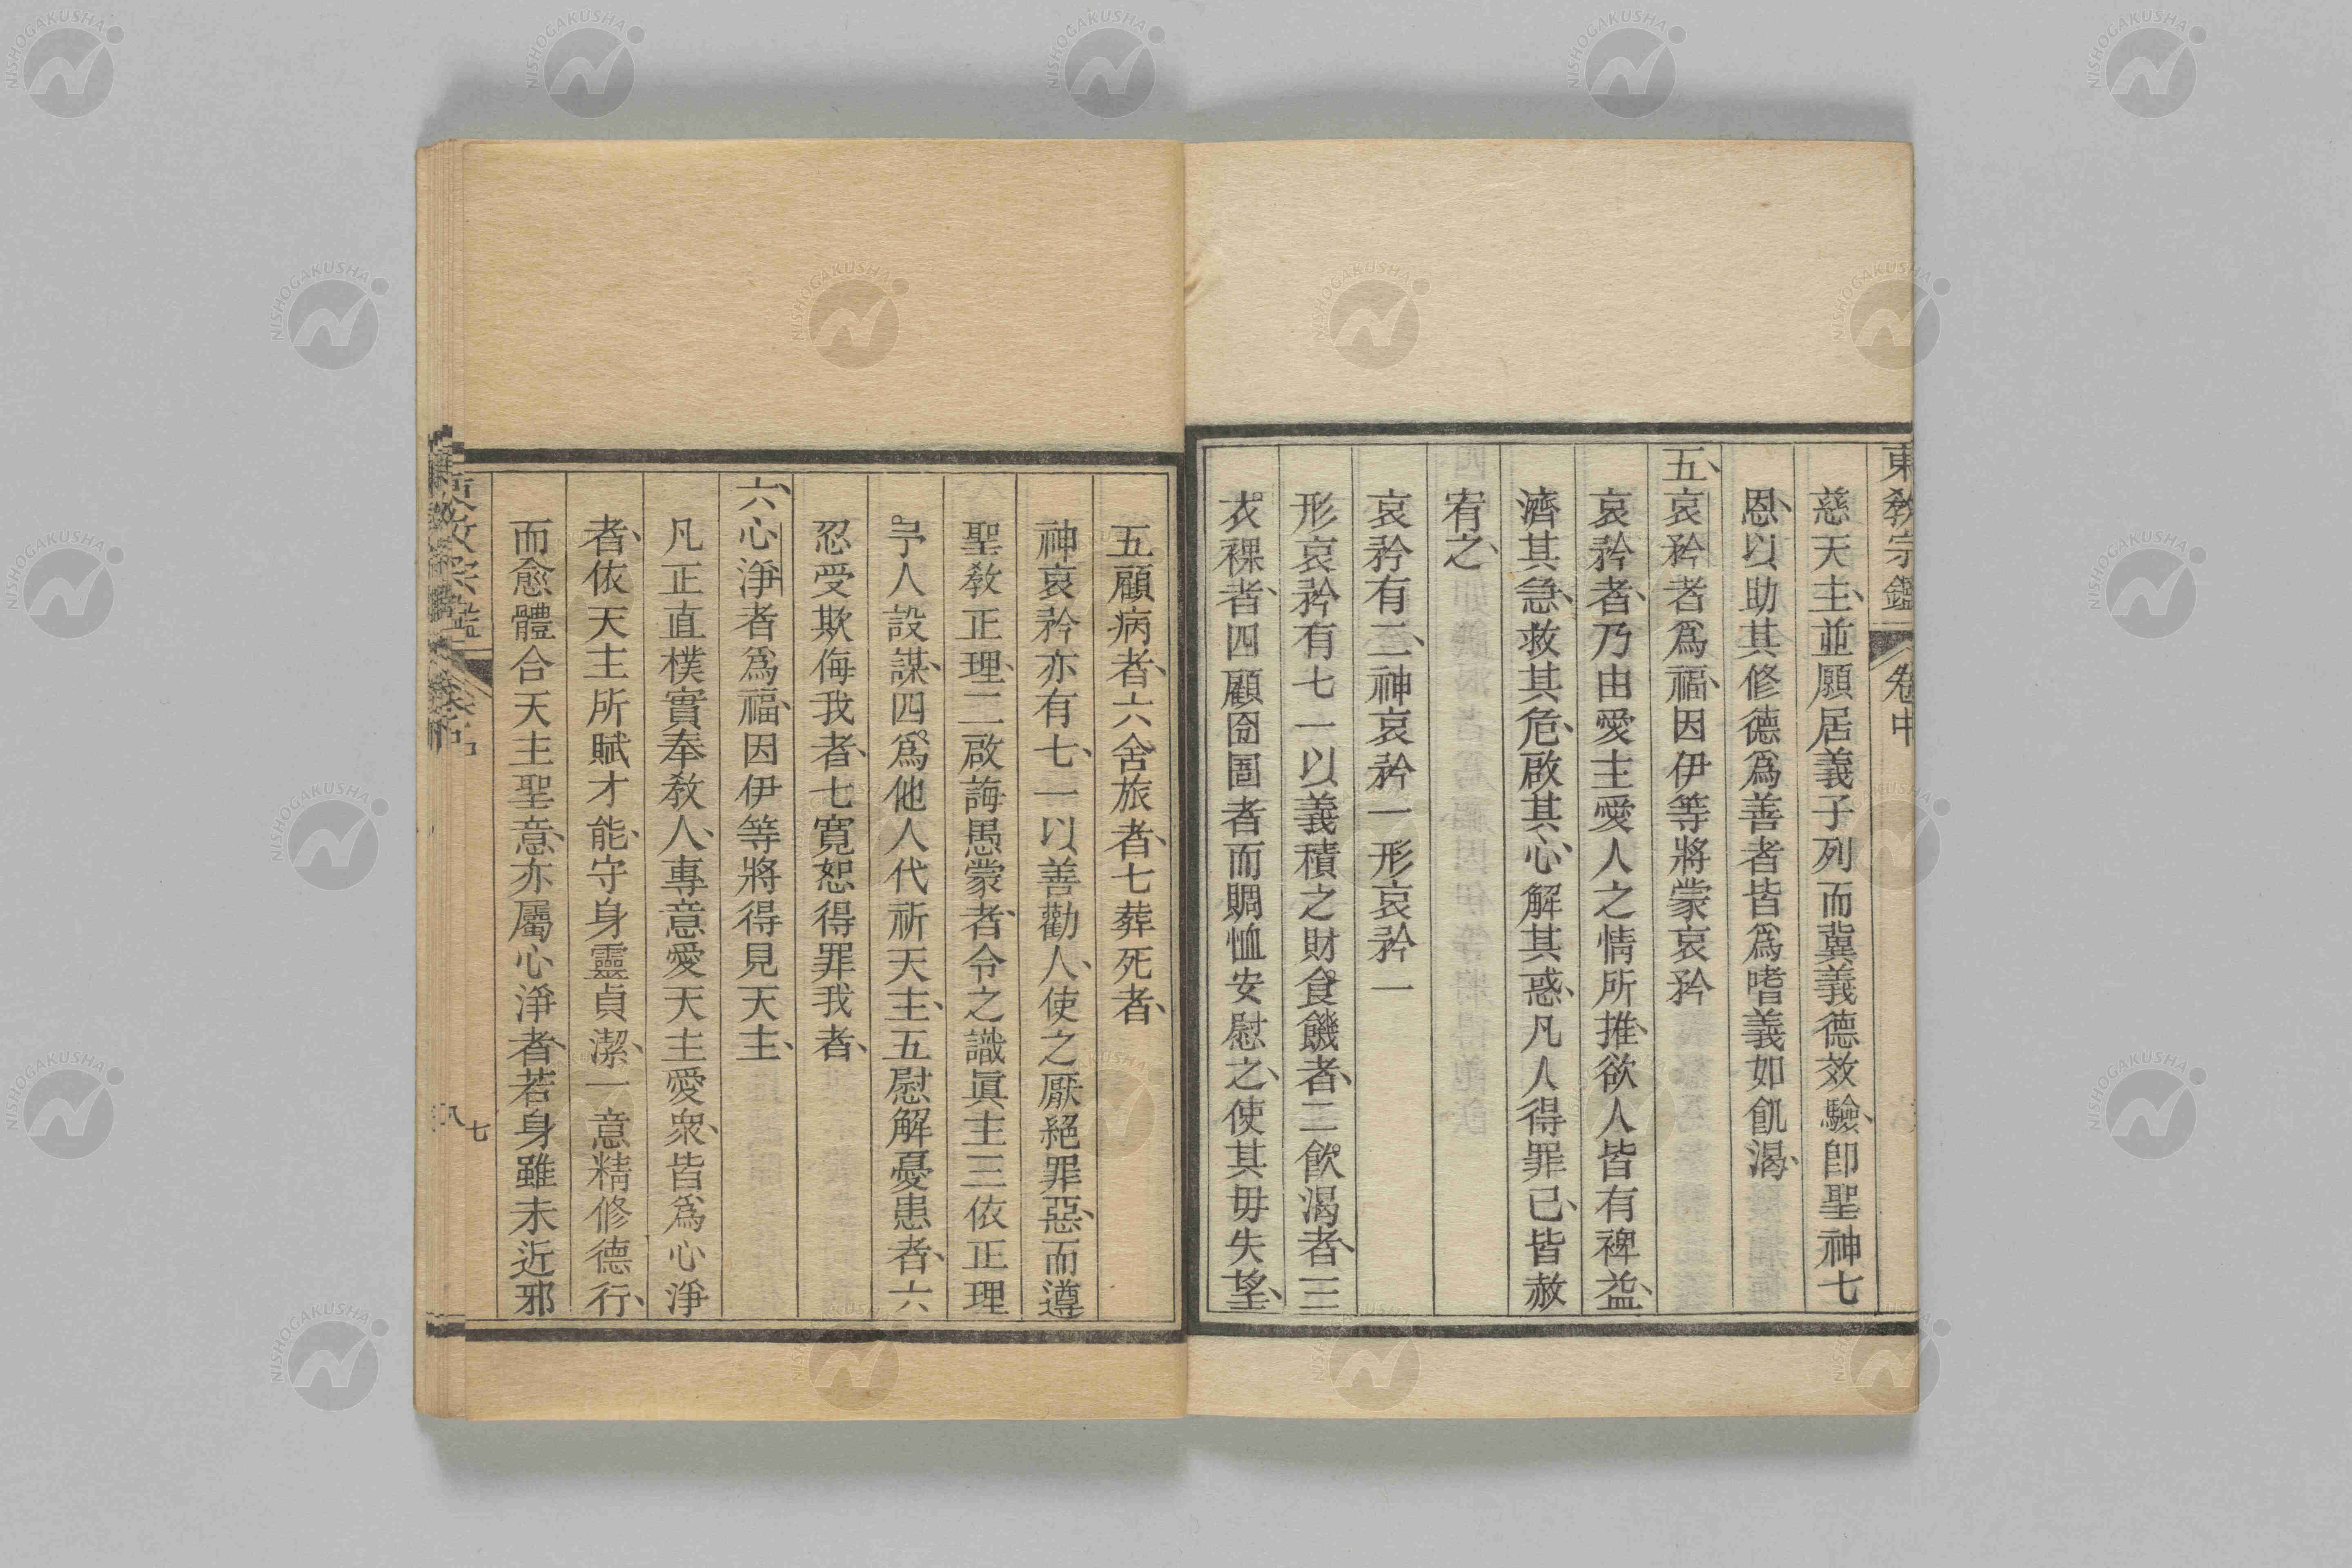 東教宗鑑 卷中
慈天主、並願居義子列而冀義德效驗、卽聖神七
恩、以助其修德爲善者皆爲嗜義如飢渴、
五、哀矜者爲福、因伊等將蒙哀矜
哀矜者、乃由愛主愛人之情所推、欲人皆有裨益、
濟其急、救其危、啟其心、解其惑、凡人得罪已、皆赦
宥之、
哀矜有二、神哀矜一形哀矜一
形哀矜有七一以義積之財食饑者、二飲渴者、三
衣裸者、四顧囹圄者而賙恤安慰之、使其毋失望、
五顧病者、六舍旅者、七葬死者、
神哀矜亦有七、一以善勸人、使之厭絕罪惡、而遵
聖教正理、二啟誨愚蒙者、令之識眞主三依正理
予人設謀、四爲他人代祈天主、五慰解憂患者、六
忍受欺侮我者、七寬恕得罪我者、
六、心淨者爲福、因伊等將得見天主、
凡正直樸實奉教人、專意愛天主愛衆、皆爲心淨
者、依天主所賦才能、守身靈貞潔、一意精修德行、
而愈體合天主聖意、亦屬心淨者、若身雖未近邪
七
NISHOGAKUSHA